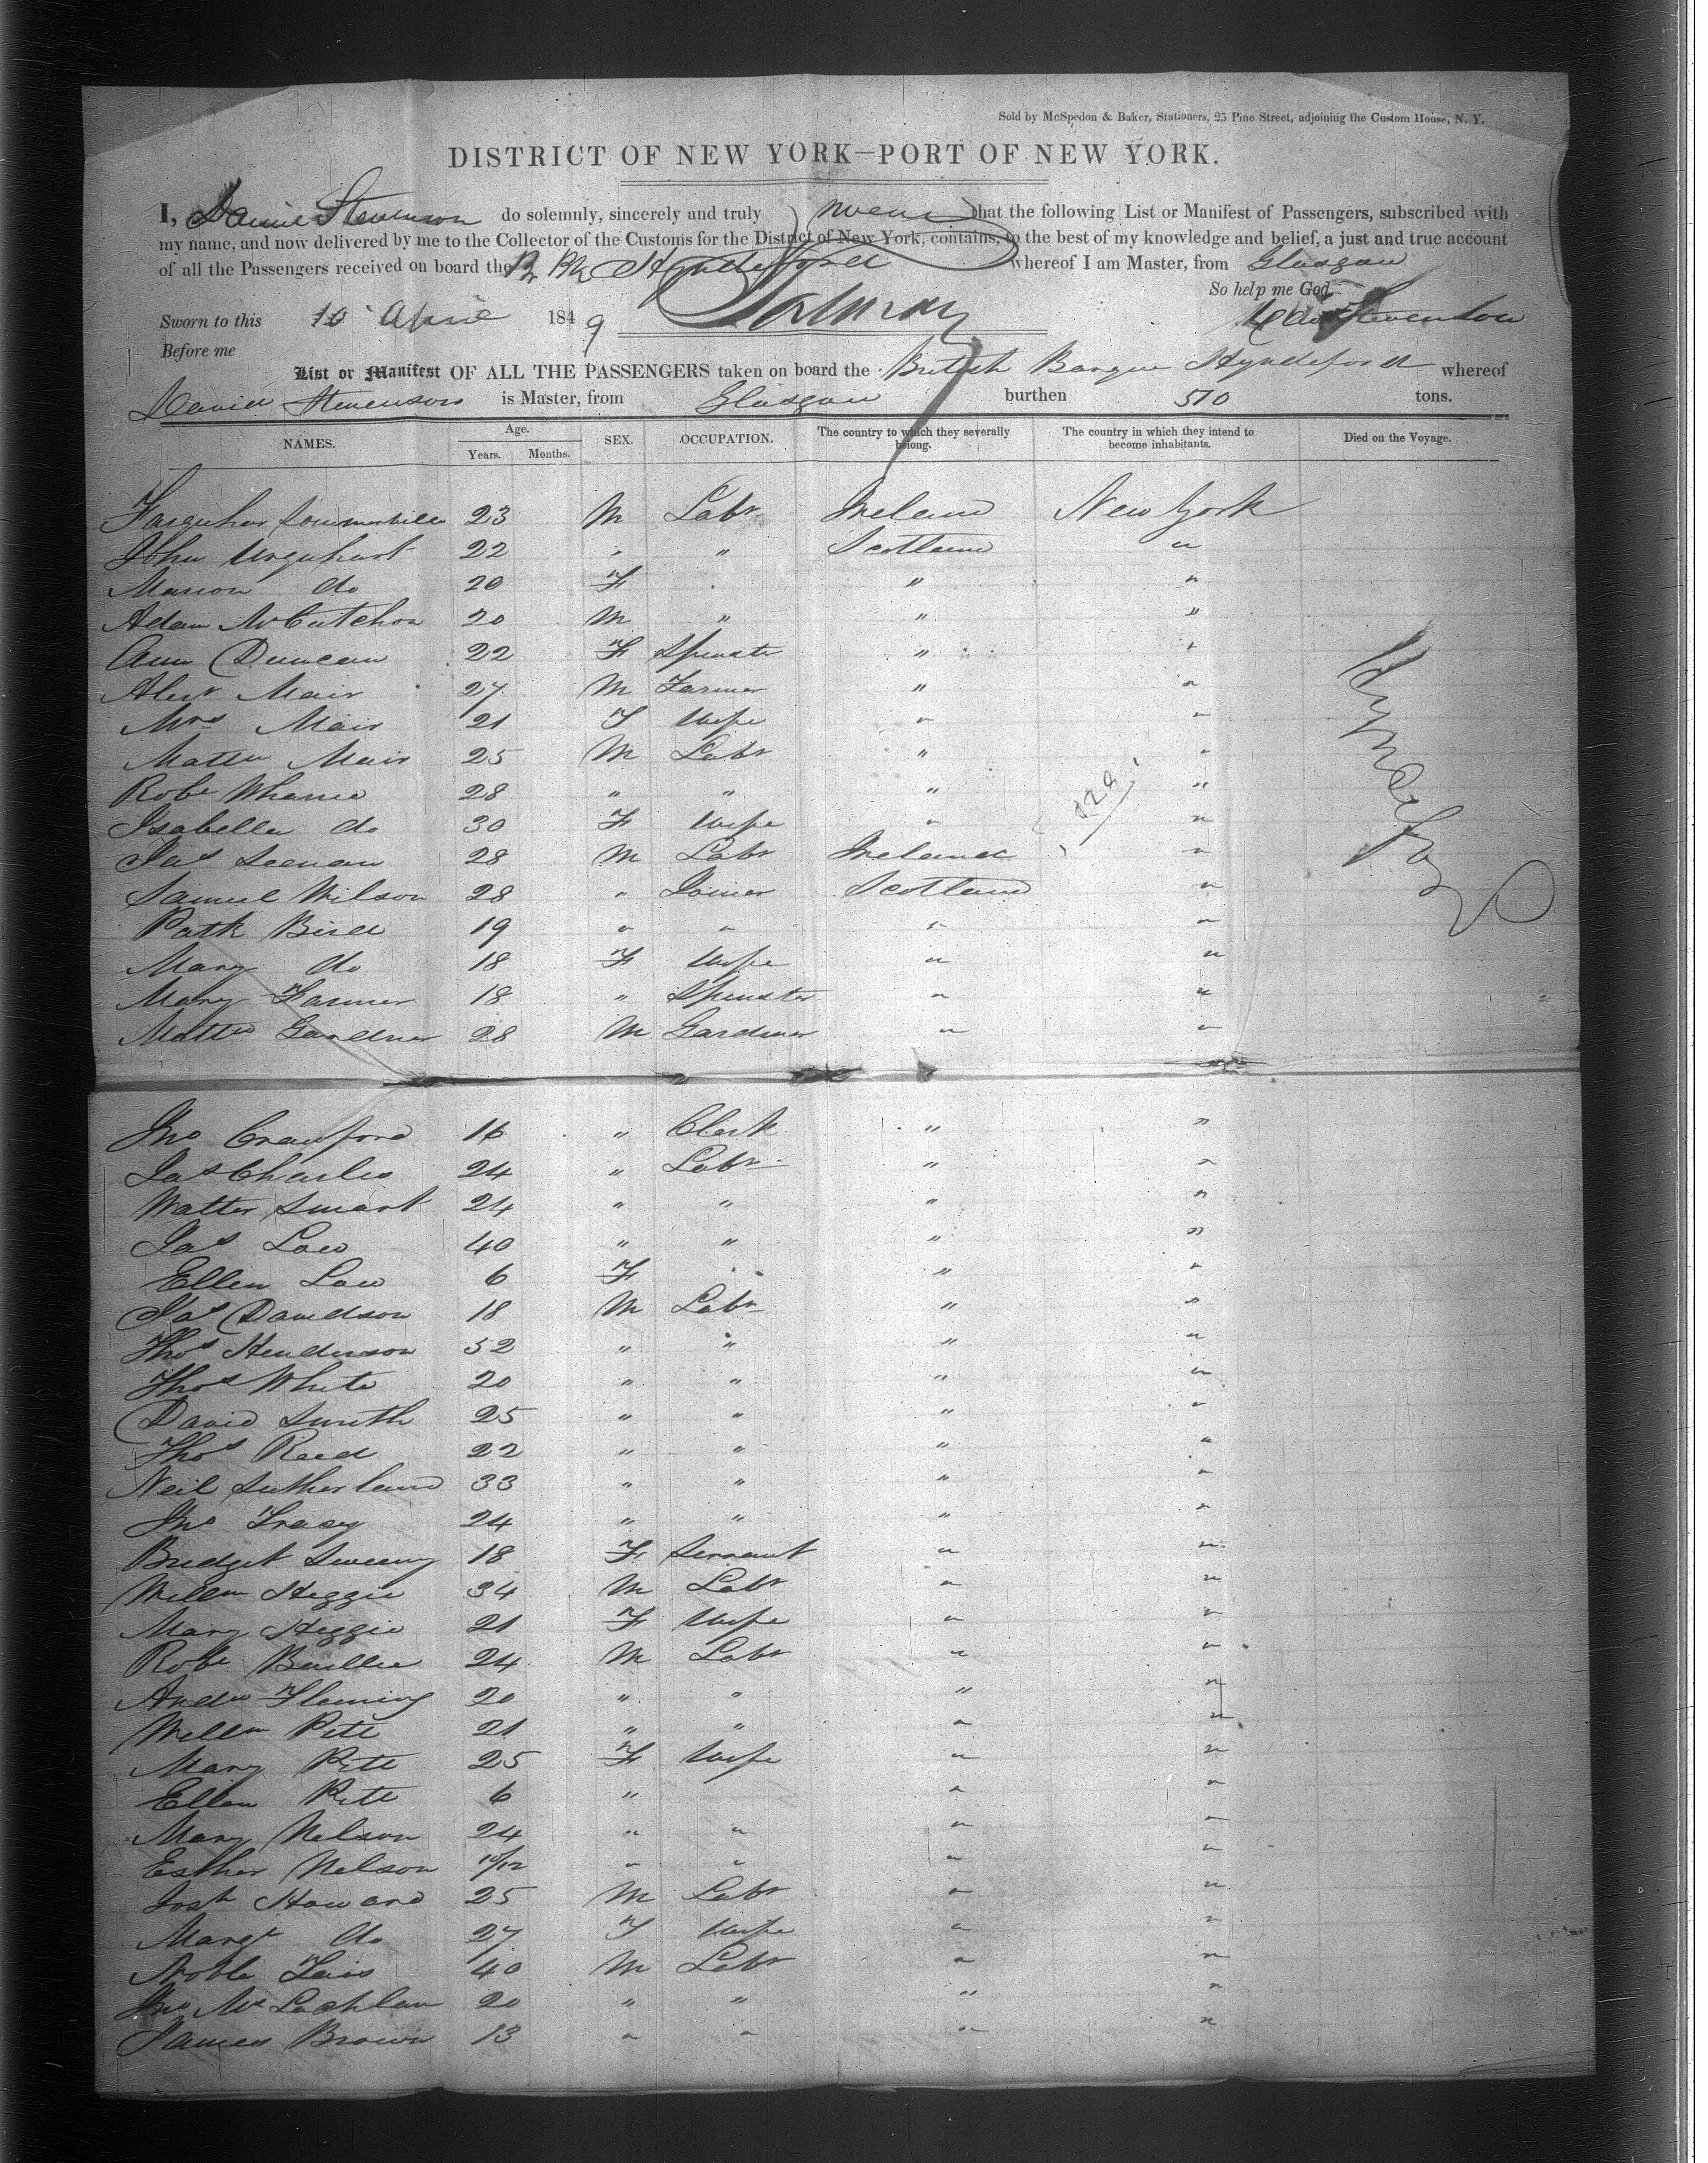 Sold by McSpedon & Baker, Stationers, 25 Pine Street, adjoining the Custom House, N. Y.
DISTRICT OF NEW YORK—PORT OF NEW YORK.
I, Daniel Stevenson do solemnly, sincerely and truly swear that the following List or Manifest of Passengers, subscribed with
my name, and now delivered by me to the Collector of the Customs for the District of New York, contains, to the best of my knowledge and belief, a just and true account
of all the Passengers received on board the Br Bk Hyndeford whereof I am Master, from Glasgow
So help me God.
Sworn to this 10 April 1849 Stevenson
Before me
List or Manifest OF ALL THE PASSENGERS taken on board the British Barque Hyndeford whereof
David Stevenson is Master, from Glasgow burthen 510 tons.
NAMES. Age. Years. Months. SEX. OCCUPATION. The country to which they severally belong. The country in which they intend to become inhabitants. Died on the Voyage.
Farquhar Sommerville 23 M Labr Ireland New York
John Urquhart 22 " " Scotland "
Marion do 20 F " "
Adam McCutchon 20 M " " "
Ann Duncan 22 F Spinster " "
Alexr Mair 27 M Farmer " "
Mrs Mair 21 F Wife " "
Matthw Mair 25 M Labr " "
Robt 28 " " " "
Isabella do 30 F Wife " "
Jas 28 M Labr Ireland "
Samuel Wilson 28 " Joiner Scotland "
Patk Bird 19 " " " "
Mary do 18 F Wife " "
Mary Farmer 18 " Spinster " "
Mattw Gardner 28 M Gardiner " "
Jno Crawford 16 " Clerk " "
Jas Charles 24 " Labr " "
Walter Smart 24 " " " "
Jas Law 40 " " " "
Ellen Law 6 F " "
Jas Davidson 18 M Labr " "
Thos Henderson 52 " " " "
Thos White 20 " " " "
David Smith 25 " " " "
Thos Reed 22 " " " "
Neil Sutherland 33 " " " "
Jno Tracey 24 " " " "
Bridget Sweeny 18 F Servant " "
Willm Heggie 34 M Labr " "
Mary Heggie 21 F Wife " "
Robt Baillie 24 M Labr " "
Andw Fleming 20 " " " "
Willm Pitt 21 " " " "
Mary Pitt 25 F Wife " "
Ellen Pitt 6 " " "
Mary Nelson 24 " " " "
Esther Nelson 10/12 " " " "
Josh Howard 25 M Labr " "
Margt do 27 F Wife " "
Noble 40 M Labr " "
Jno McLachlan 20 " " " "
James Brown 13 " " " "